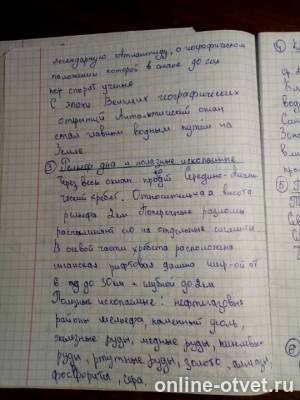 легендарную Атлантиду, о географическом
положении которой в океане до сих
пор спорят ученые
С эпохи Великих географических
открытий Атлантический океан
стал главным водным путём на
Земле.
3 Рельеф дна и полезные ископаемые
Через весь океан Срединно-
хребет. Относительная высота
рельефа 2км Поперечные разломы
его на отдельные сегменты
В осевой части хребта расположена
гигантская рифтовая долина шир-ой от
6 до 30км и глубиной до 2км
Полезные ископаемые: нефтегазовые
районы шельфа, каменный уголь,
железные руды, медные руды, никелевые
руды, ртутные руды, золото, алмазы
фосфориты, сера,
4
5
6
online-otvet.ru